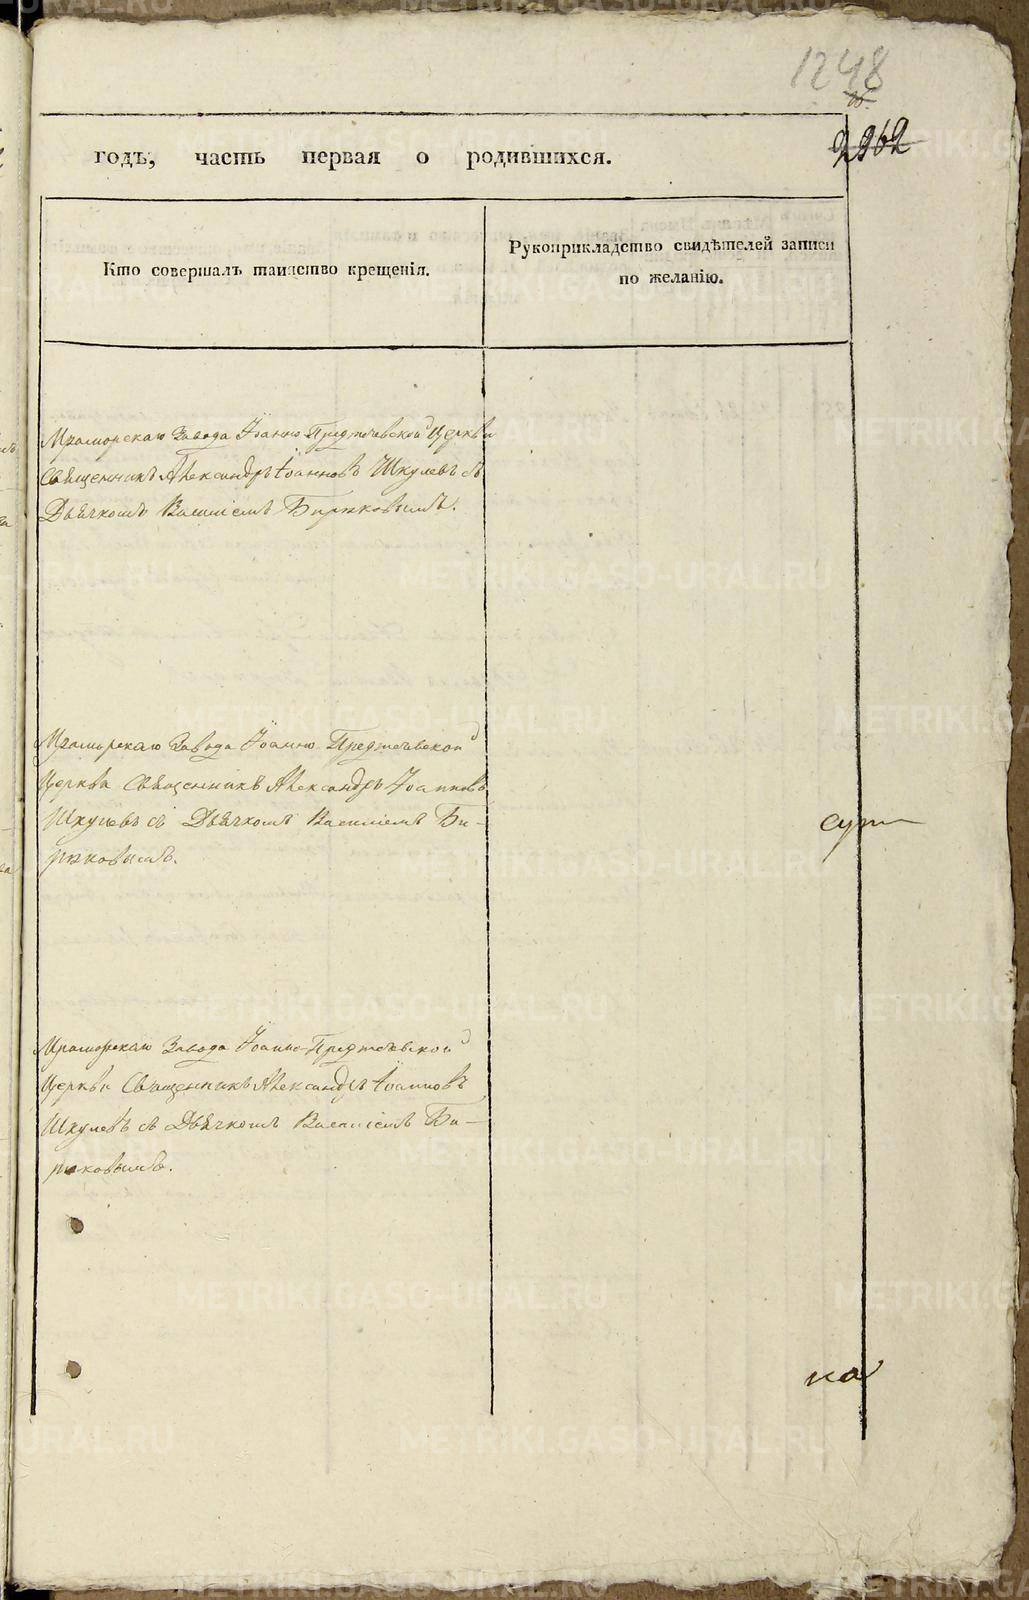 1248
2262
годъ, часть первая о родившихся.
Кто совершалъ таинство крещенія.
Рукоприкладство свидѣтелей записи
по желанію.
Мраморскаго Завода Іоанно Предтечевской Церкви
Священникъ Александръ Іоанновъ Шкулевъ съ
Дьячкомъ Василіемъ Бирюковымъ.
Мраморскаго Завода Іоанно Предтечевской
Церкви Священникъ Александръ Іоанновъ
Шкулевъ съ Дьячкомъ Василіемъ Би-
рюковымъ.
Мраморскаго Завода Іоанно-Предтечевской
Церкви Священникъ Александръ Іоанновъ
Шкулевъ съ Дьячкомъ Василіемъ Би-
рюковымъ.
METRIKI.GASO-URAL.RU